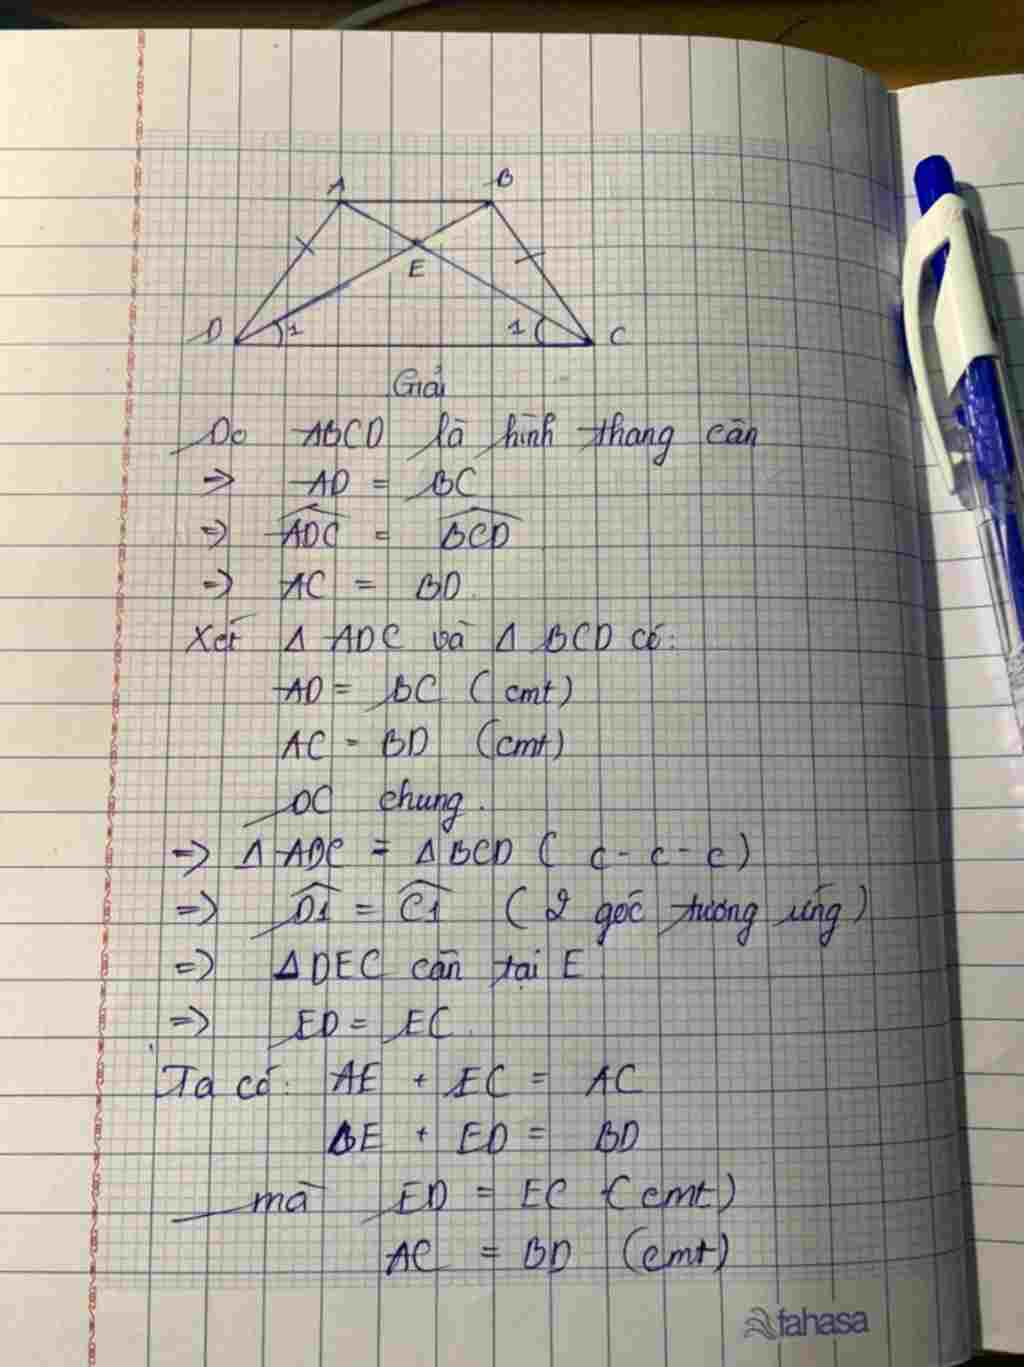 A B
E
D 1 1 C
Giải
Do ABCD là hình thang cân
=> AD = BC
=> \widehat{ADC} = \widehat{BCD}
=> AC = BD.
Xét Δ ADC và Δ BCD có:
AD = BC (cmt)
AC = BD (cmt)
DC chung.
=> Δ ADC = Δ BCD ( c - c - c )
=> \widehat{D1} = \widehat{C1} ( 2 góc tương ứng )
=> Δ DEC cân tại E
=> ED = EC.
Ta có: AE + EC = AC
BE + ED = BD
mà ED = EC (cmt)
AC = BD (cmt)
fahasa